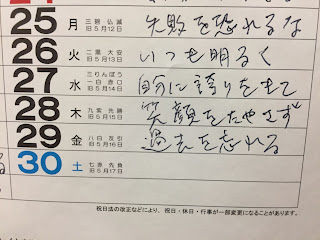 25 月 三碧 仏滅 旧5月12日 失敗を恐れるな
26 火 二黒 大安 旧5月13日 いつも明るく
27 水 さりんぼう 一白 赤口 旧5月14日 自分に誇りをもて
28 木 九紫 先勝 旧5月15日 笑顔をたやさず
29 金 八白 友引 旧5月16日 過去を忘れる
30 土 七赤 先負 旧5月17日
祝日法の改正などにより、祝日・休日・行事が一部変更になることがあります。